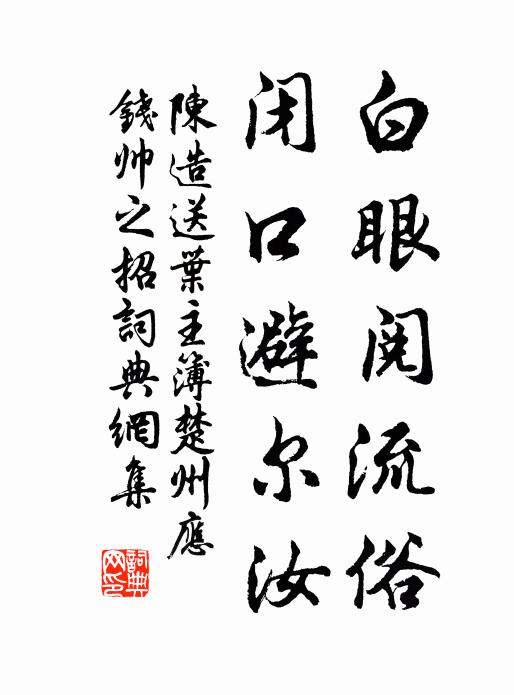 白眼阅流俗
闭口避尔汝
陳造送葉主簿楚州應
錢帅之招詞典網集
詞典网印